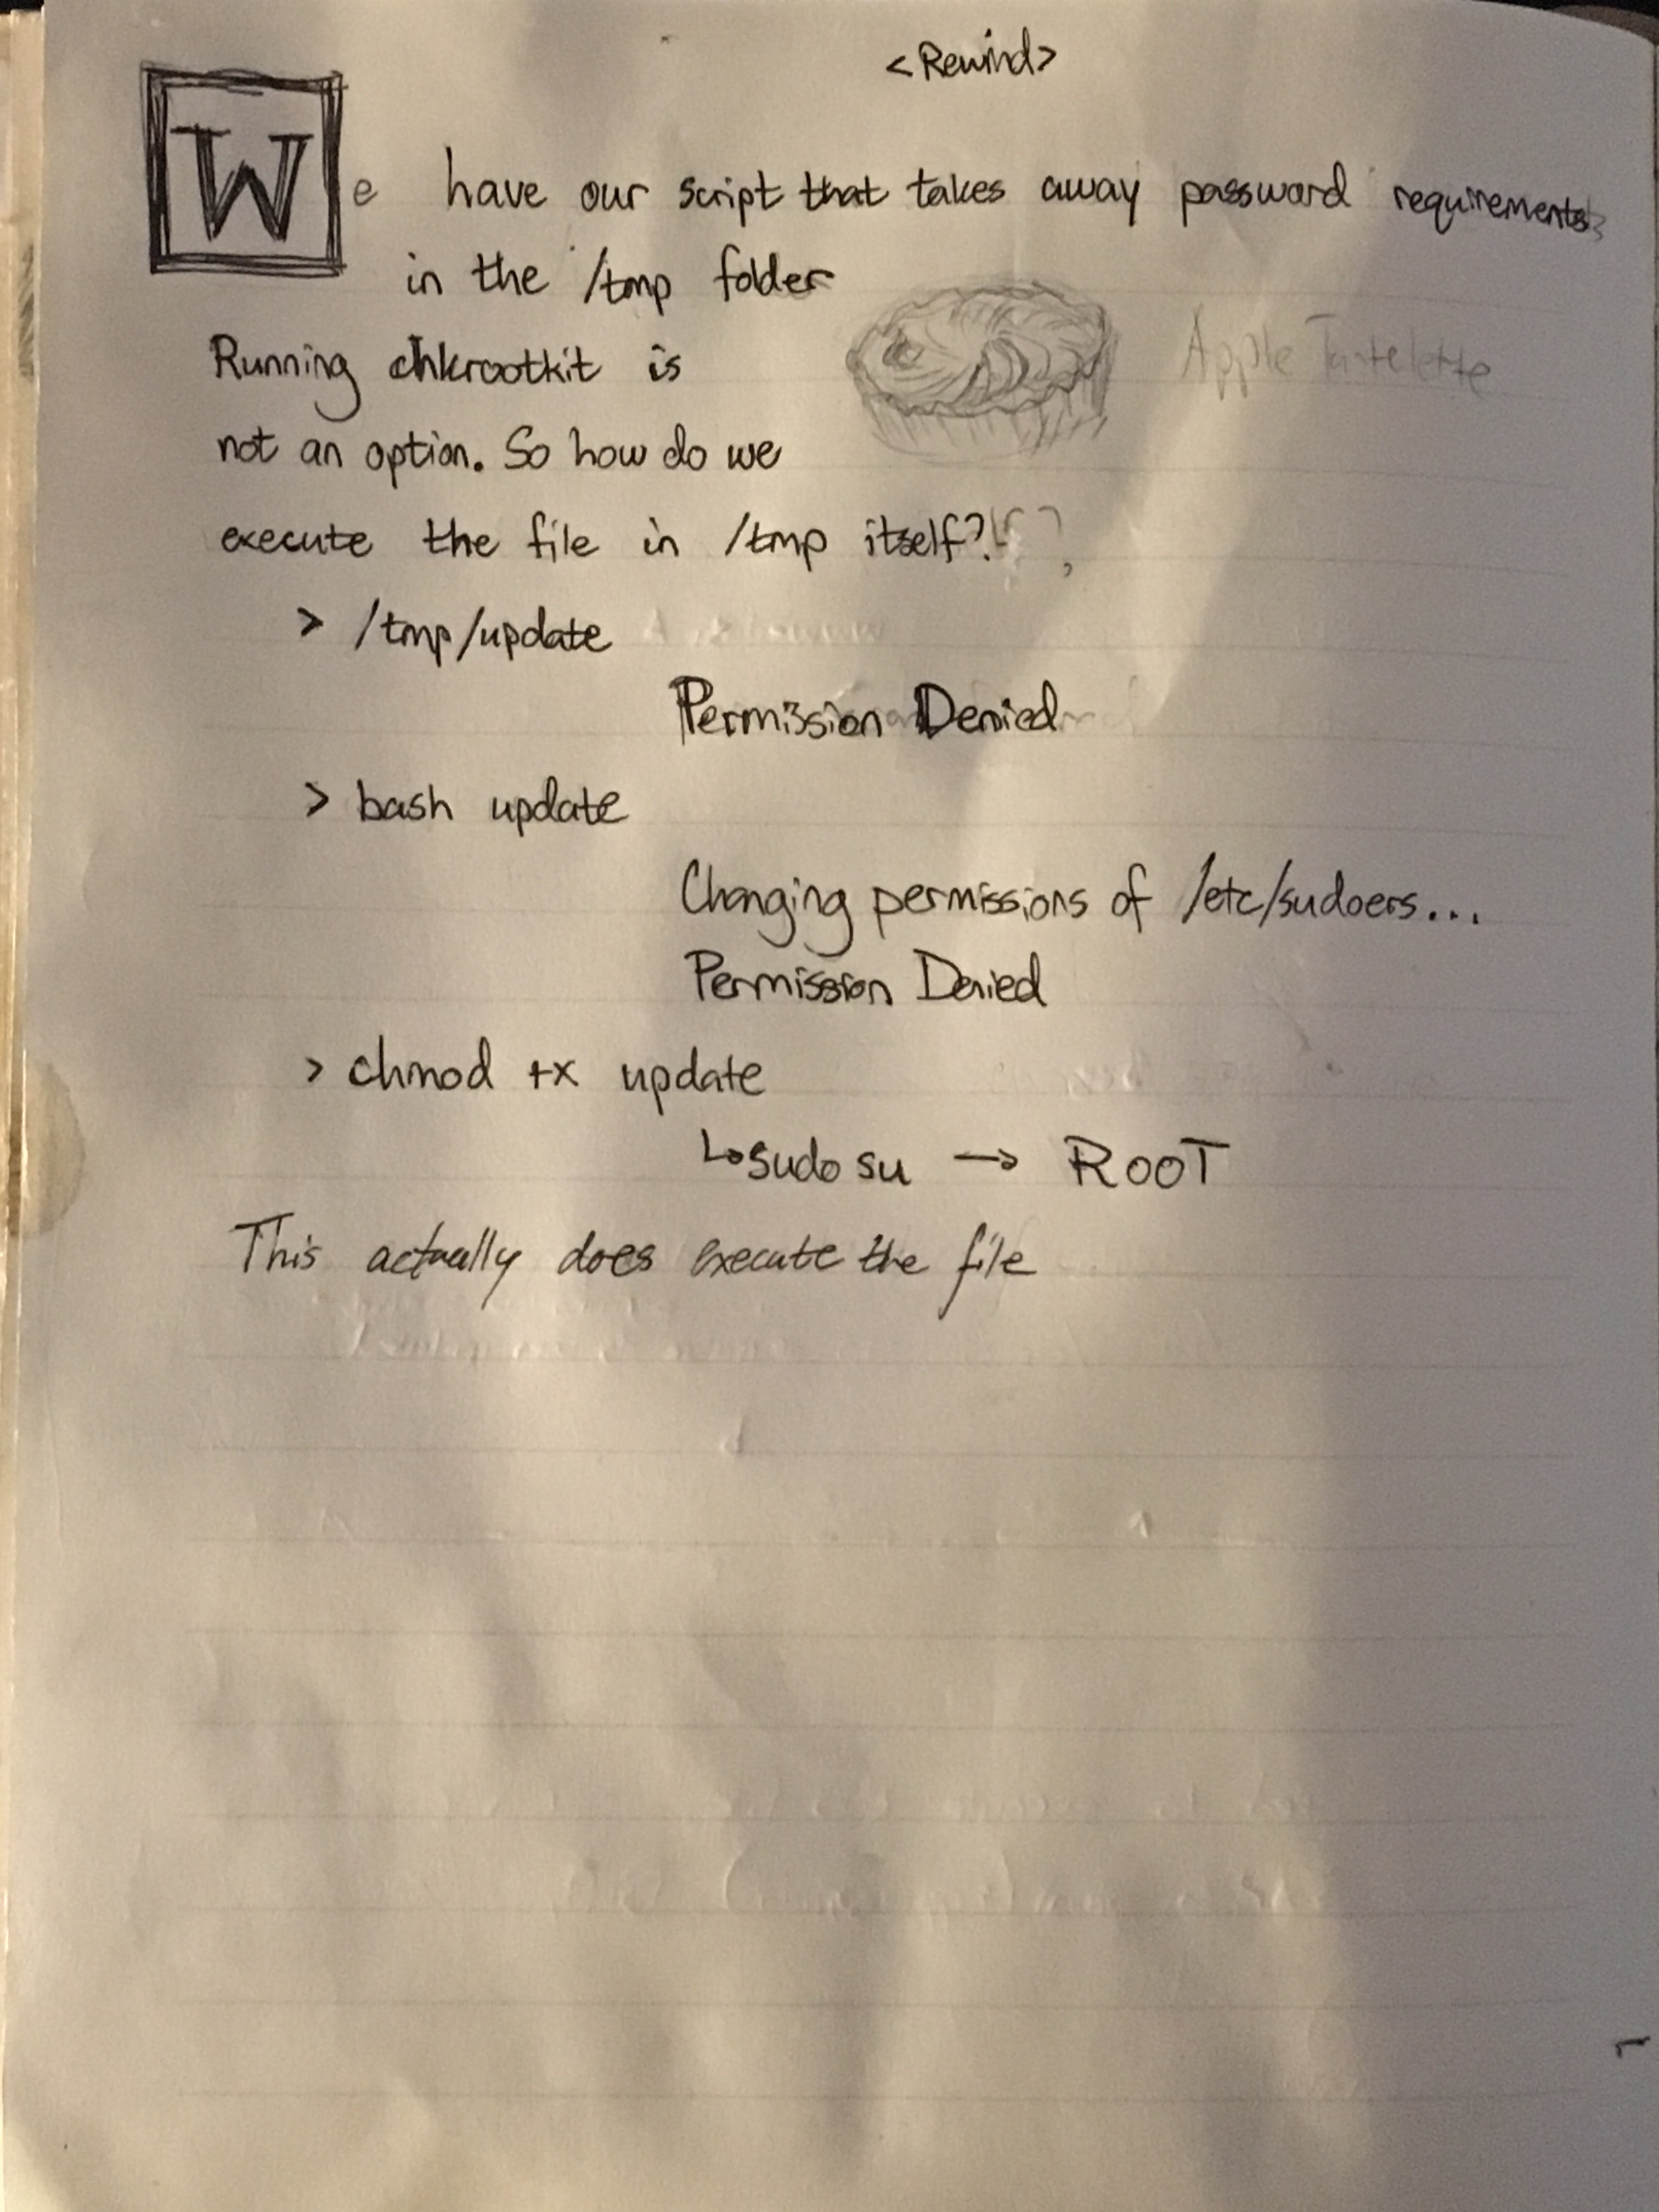 <Rewind>
We have our script that takes away password requirements
in the /tmp folder
Apple Tartelette
Running chkrootkit is
not an option. So how do we
execute the file in /tmp itself?!
> /tmp/update
Permission Denied
> bash update
Changing permissions of /etc/sudoers...
Permission Denied
> chmod +x update
↳ sudo su → ROOT
This actually does execute the file